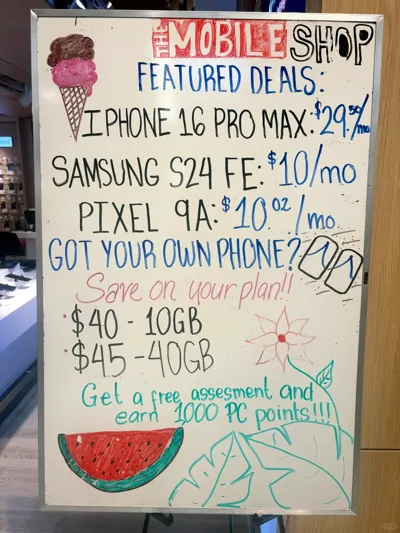 THE MOBILE SHOP
FEATURED DEALS:
IPHONE 16 PRO MAX: $29.50/mo
SAMSUNG S24 FE: $10/mo
PIXEL 9A: $10.02/mo
GOT YOUR OWN PHONE?
Save on your plan!!
• $40 - 10GB
• $45 - 40GB
Get a free assesment and
earn 1000 PC points!!!